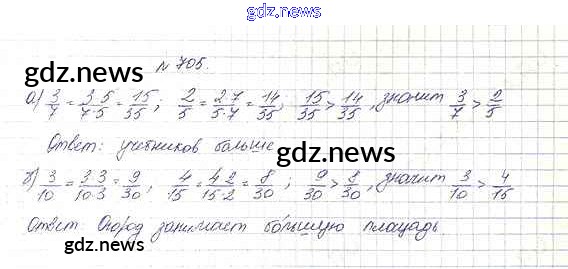 gdz.news
№ 705.
gdz.news gdz.news
а) 3/7 = 3·5/7·5 = 15/35; 2/5 = 2·7/5·7 = 14/35; 15/35 > 14/35, значит 3/7 > 2/5
Ответ: учебников больше
gdz.news
б) 3/10 = 3·3/10·3 = 9/30, 4/15 = 4·2/15·2 = 8/30; 9/30 > 8/30, значит 3/10 > 4/15
Ответ Огород занимает большую площадь
gdz.news gdz.news